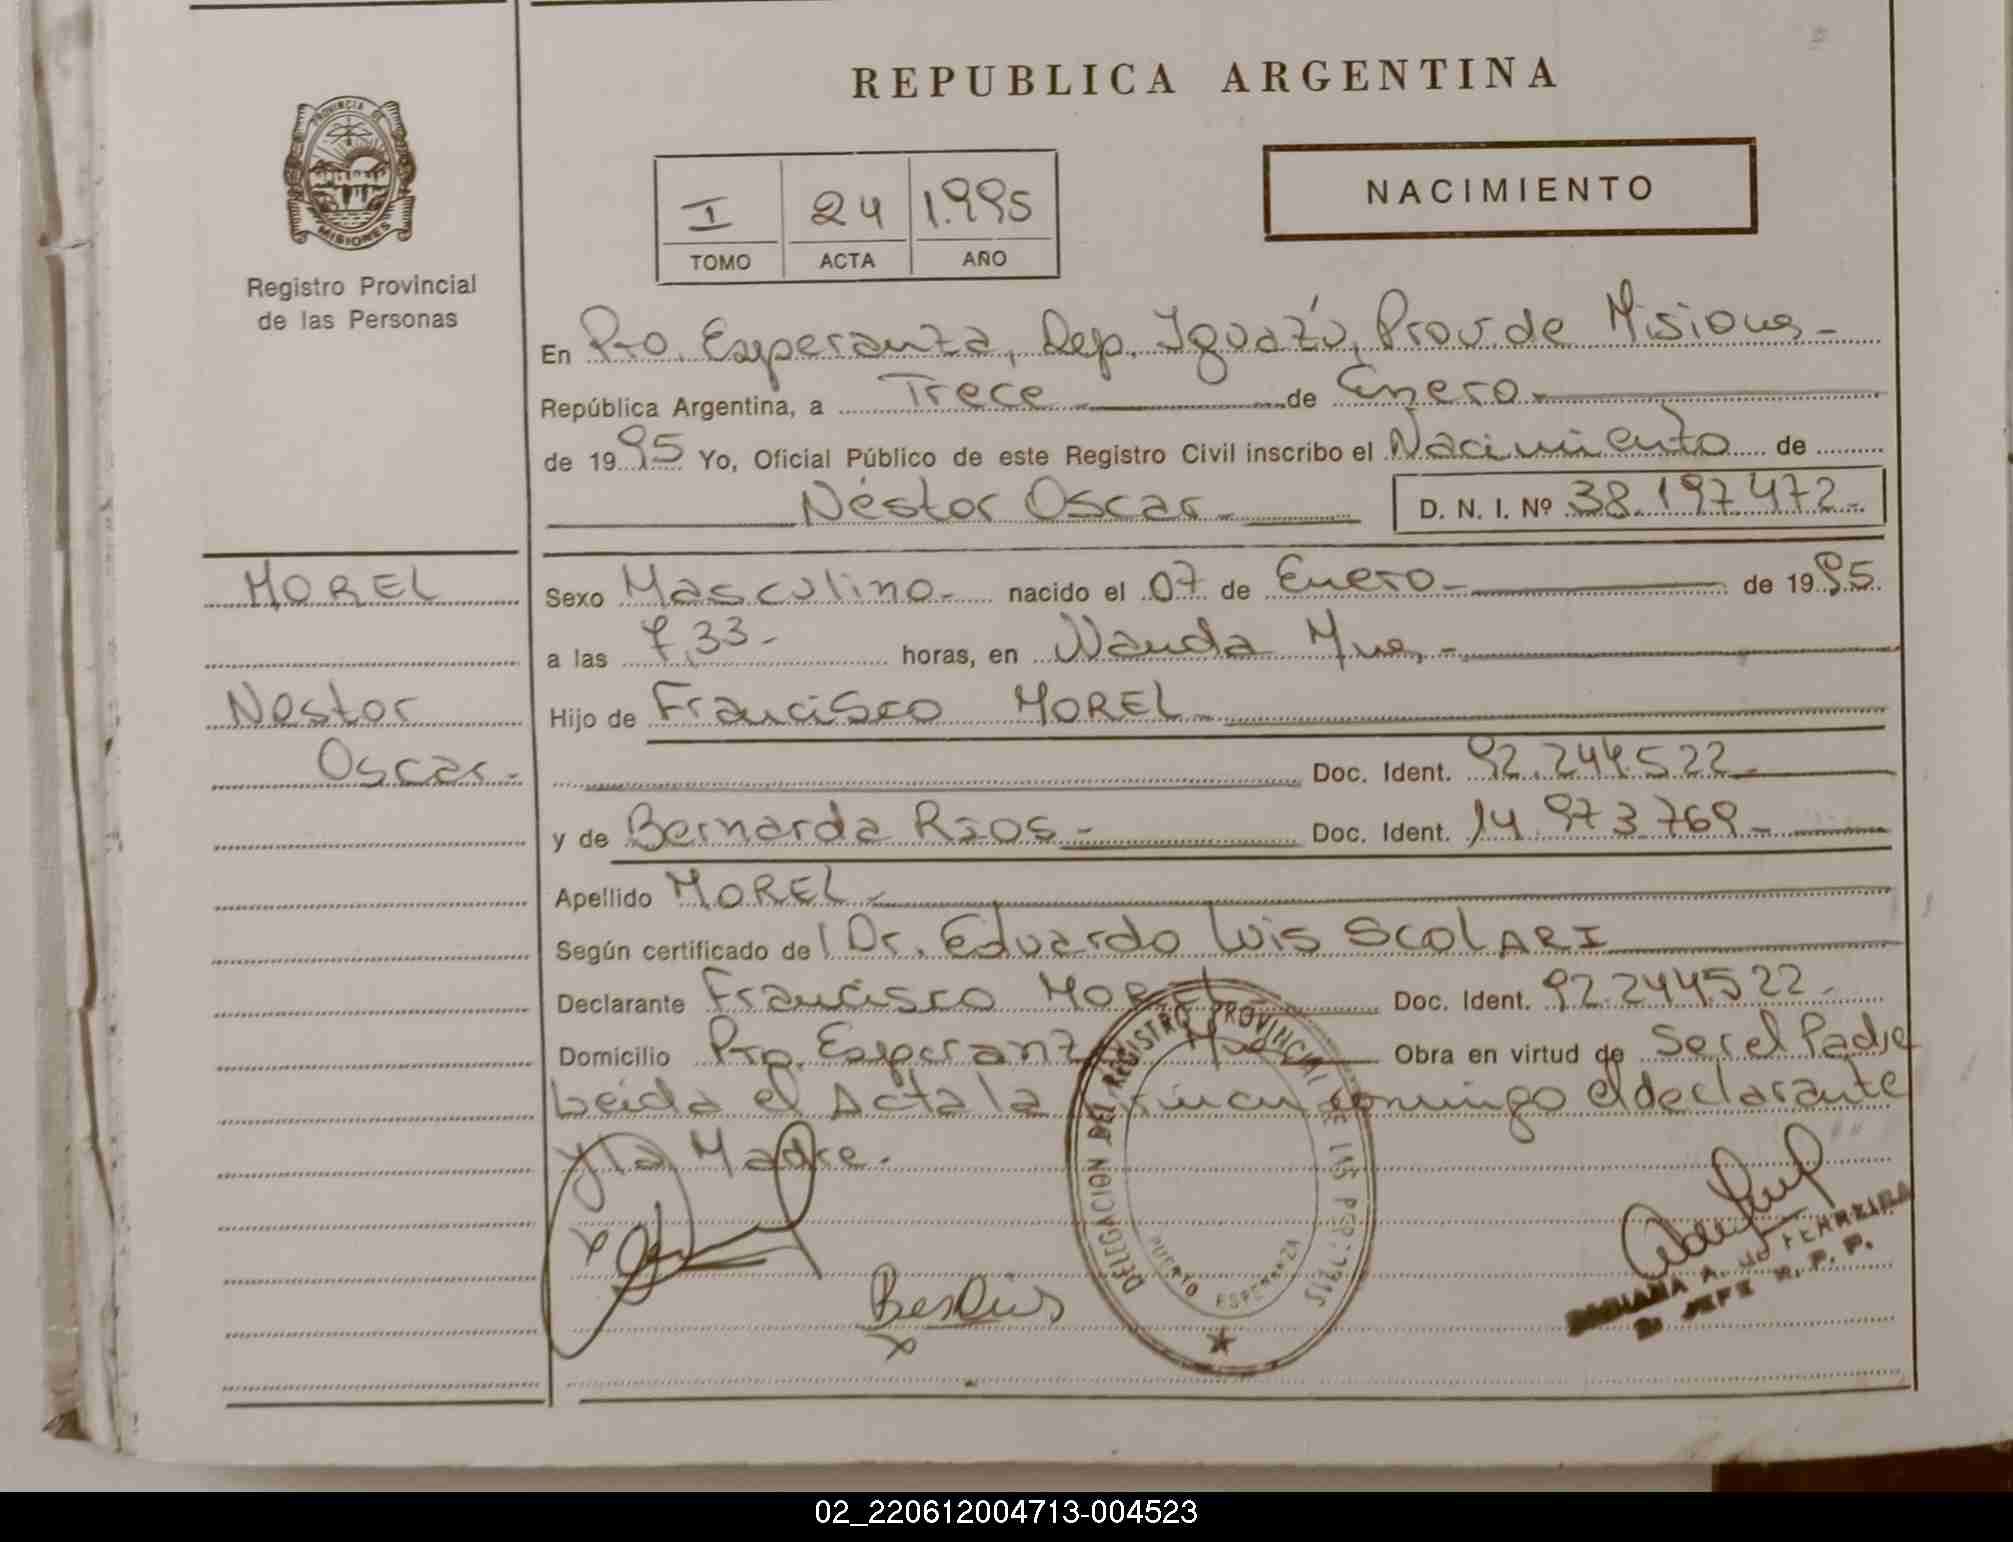 REPUBLICA ARGENTINA
PROVINCIA DE
MISIONES
Registro Provincial
de las Personas
NACIMIENTO
I 24 1.995
TOMO ACTA AÑO
En Pto. Esperanza, Dep. Iguazú, Prov. de Misiones -
República Argentina, a Trece de Enero -
de 1995 Yo, Oficial Público de este Registro Civil inscribo el Nacimiento de
Néstor Oscar - D. N. I. Nº 38.197.472 -
MOREL
Nestor
Oscar -
Sexo Masculino - nacido el 07 de Enero - de 1995.
a las 7,33 - horas, en Wanda Mnes, -
Hijo de Francisco MOREL -
Doc. Ident. 92.244.522 -
y de Bernarda Ríos - Doc. Ident. 14.973.769 -
Apellido MOREL -
Según certificado de Dr. Eduardo Luis SCOLARI
Declarante Francisco MOREL Doc. Ident. 92.244.522 -
Domicilio Pto. Esperanza Mnes Obra en virtud de Ser el Padre
Leida el Acta la conmigo el declarante
y la Madre.
BerRios
DELEGACION DEL REGISTRO PROVINCIAL DE LAS PERSONAS
PUERTO ESPERANZA
A. de FERREIRA
JEFE R. P. P.
02_220612004713-004523